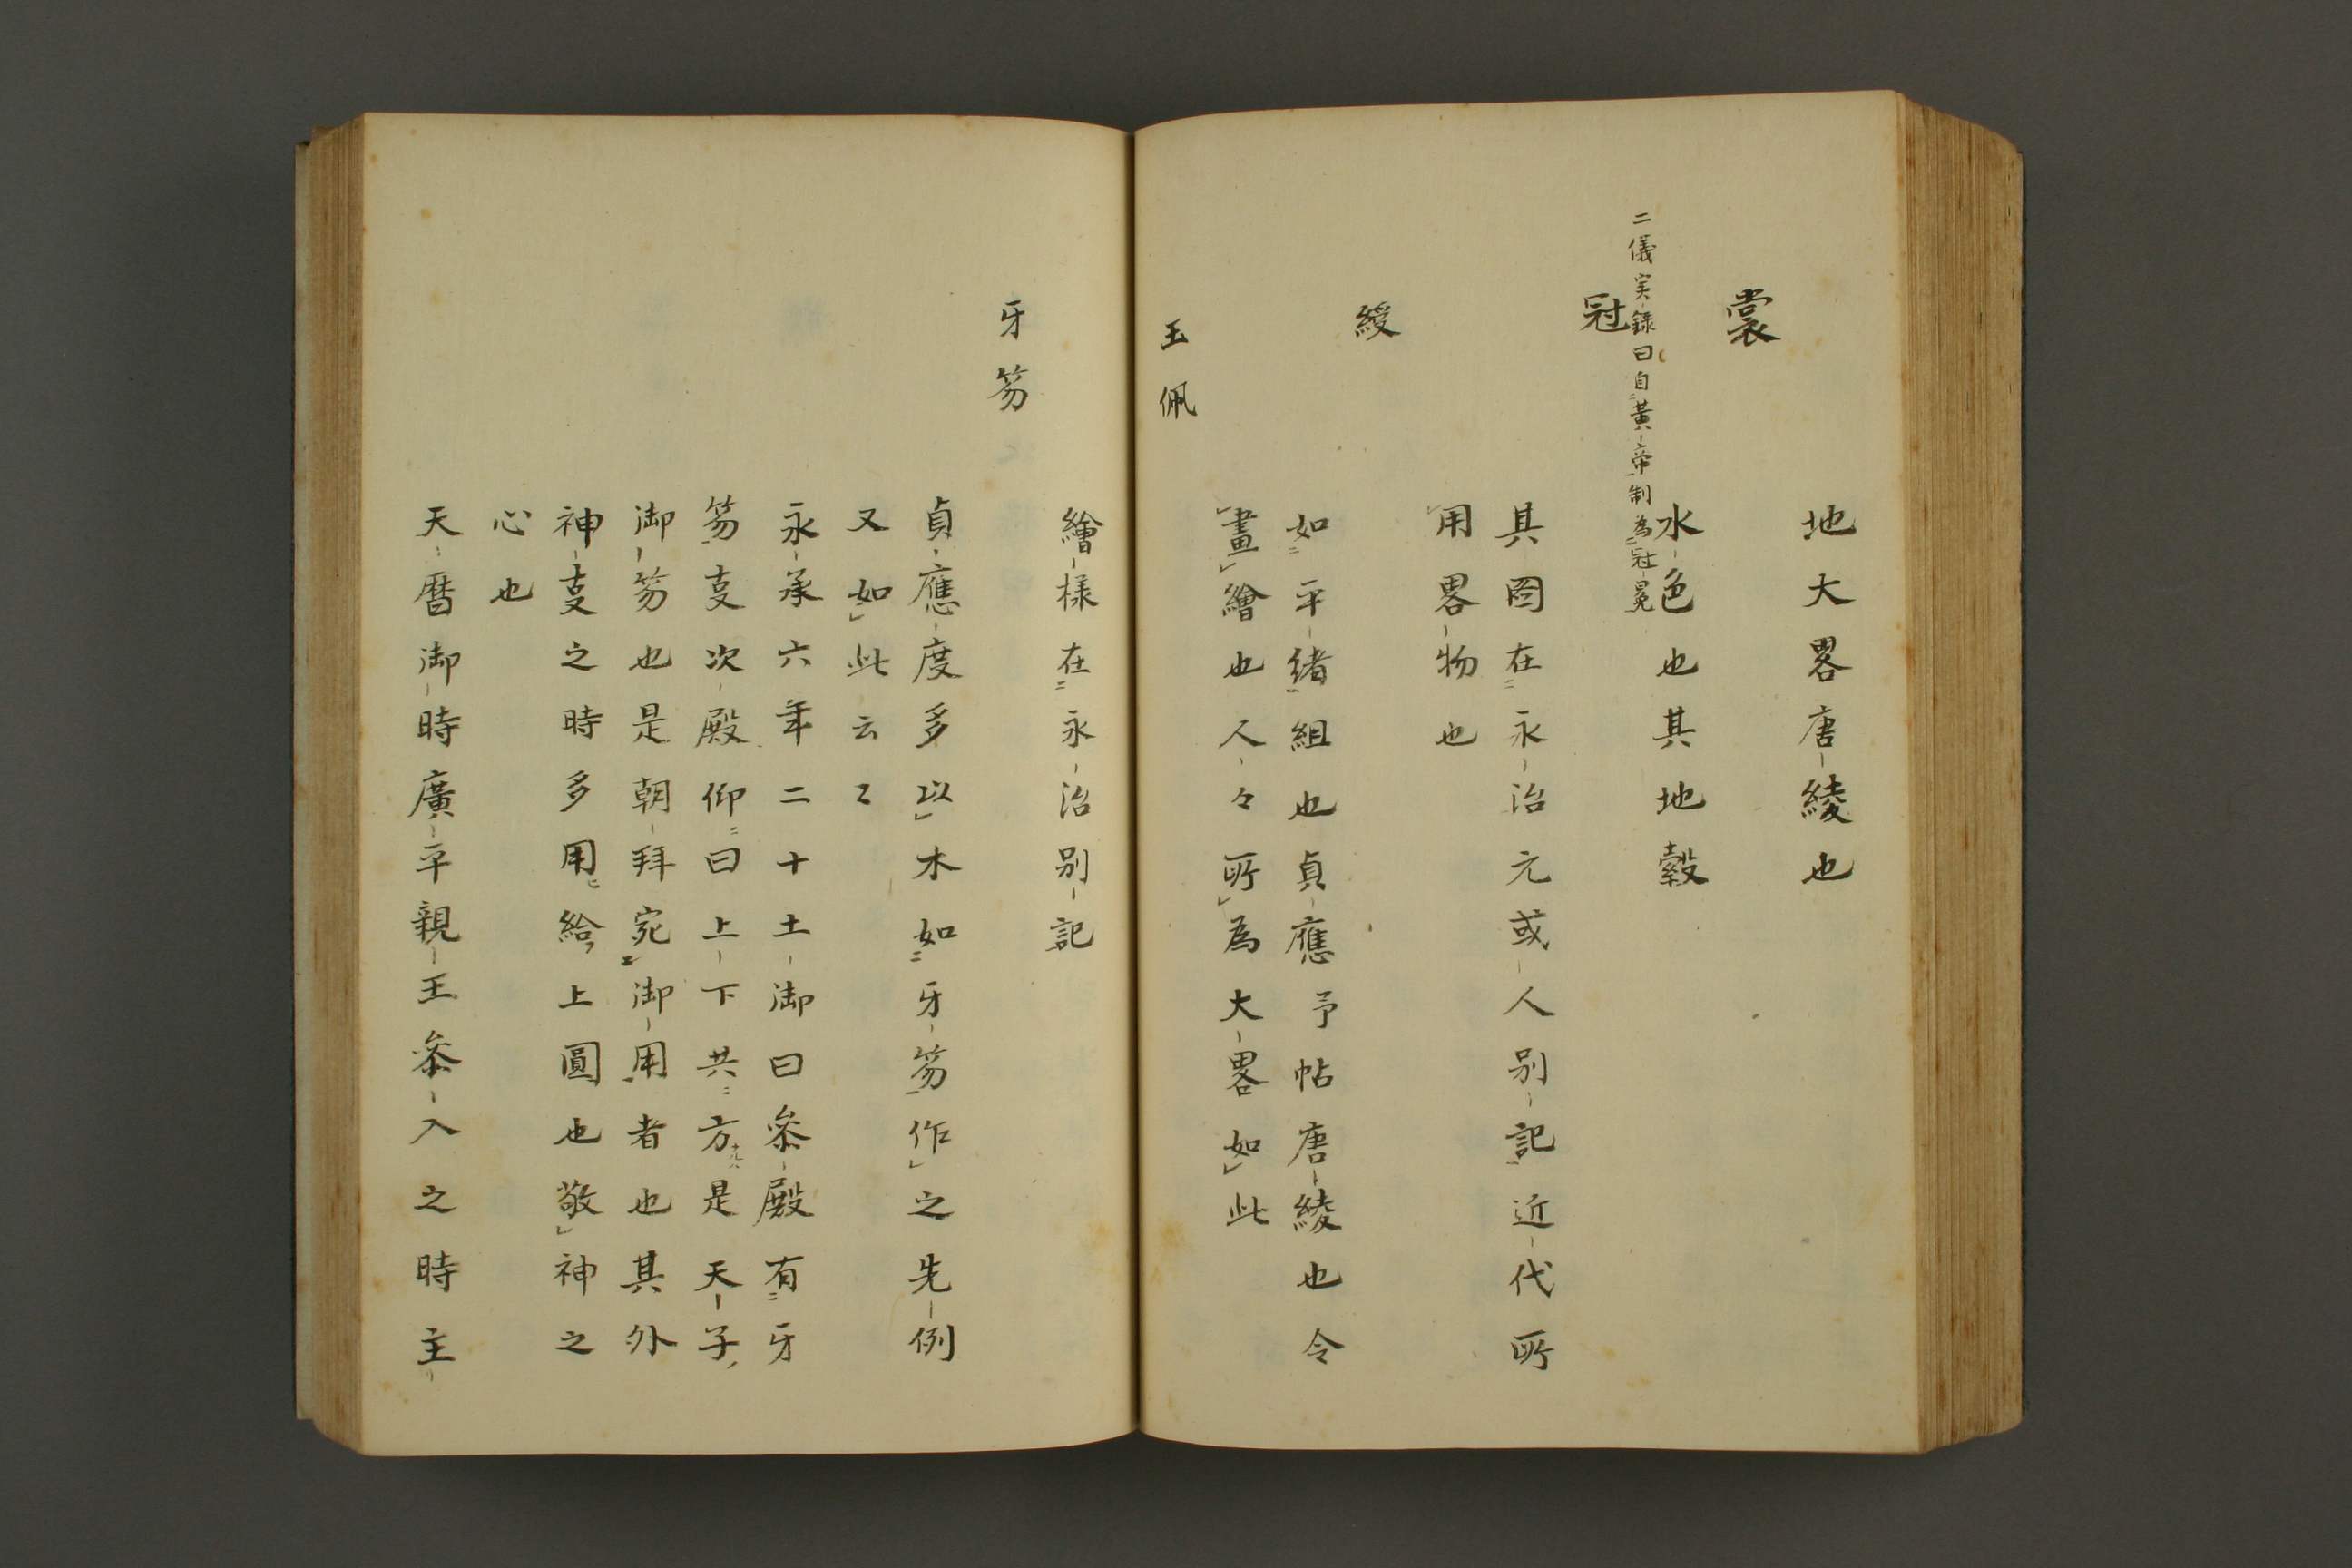 地大畧唐綾也
裳
水色也其地縠
二儀実録曰自黄帝制為冠冕
冠
其圖在永治元或人別記近代所
用畧物也
綬
如平緒組也貞應予帖唐綾也令
畫繪也人々所為大畧如此
玉佩
繪様在永治別記
牙笏
貞應度多以木如牙笏作之先例
又如此云〻
永承六年二十土御曰参殿有牙
笏㕝次殿仰曰上下共方是天子
御笏也是朝拜宛御用者也其外
神㕝之時多用給上圓也敬神之
心也
天暦御時廣平親王参入之時主